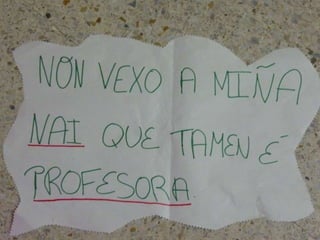 NON VEXO A MIÑA
NAI QUE TAMEN É
PROFESORA.